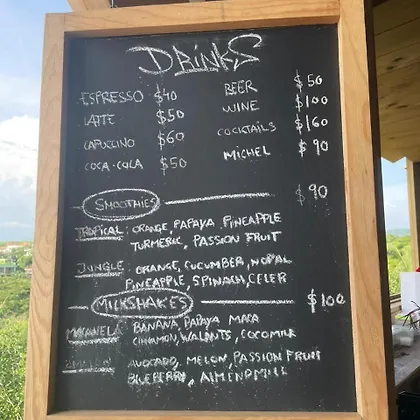 DRINKS
ESPRESSO $40
LATTE $50
CAPUCCINO $60
COCA-COLA $50
BEER $50
WINE $100
COCKTAILS $160
MICHEL $90
SMOOTHIES $90
TROPICAL ORANGE, PAPAYA PINEAPPLE
TURMERIC, PASSION FRUIT
JUNGLE ORANGE, CUCUMBER, NOPAL
PINEAPPLE, SPINACH, CELER
MILKSHAKES $100
BANANA, PAPAYA MACA
CINAMON, WALANTS, COCOMILK
AVOCADO, MELON, PASSION FRUIT
BLUEBERRY, ALMENDMILK